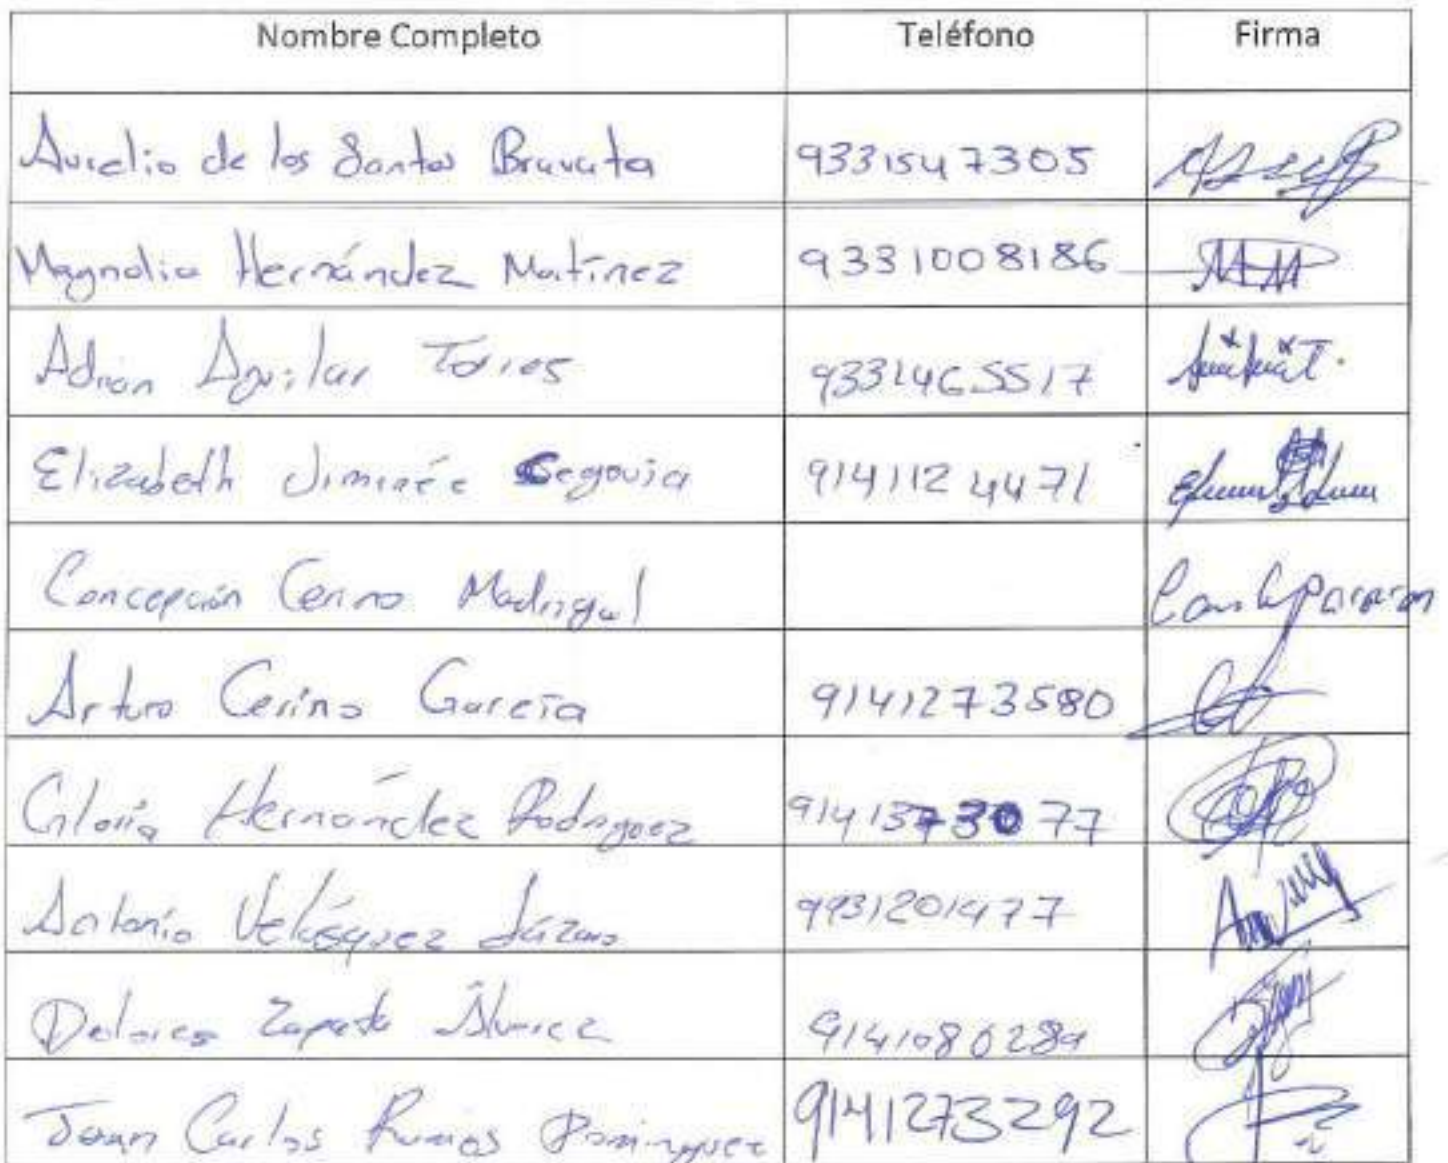 Nombre Completo Teléfono Firma
Aurelio de los Santos Bravata 9331547305
Magnolia Hernández Martínez 9331008186
Adrian Aguilar Torres 9331465517
Elizabeth Jimenéz Segovia 9141124471
Concepción Cerino Madrigal
Arturo Cerino García 9141273580
Gloria Hernández Rodriguez 9141373077
Antonio Velásquez Lázaro 9931201477
Dolores Zapata Álvarez
Juan Carlos Ramos Dominguez 9141273292